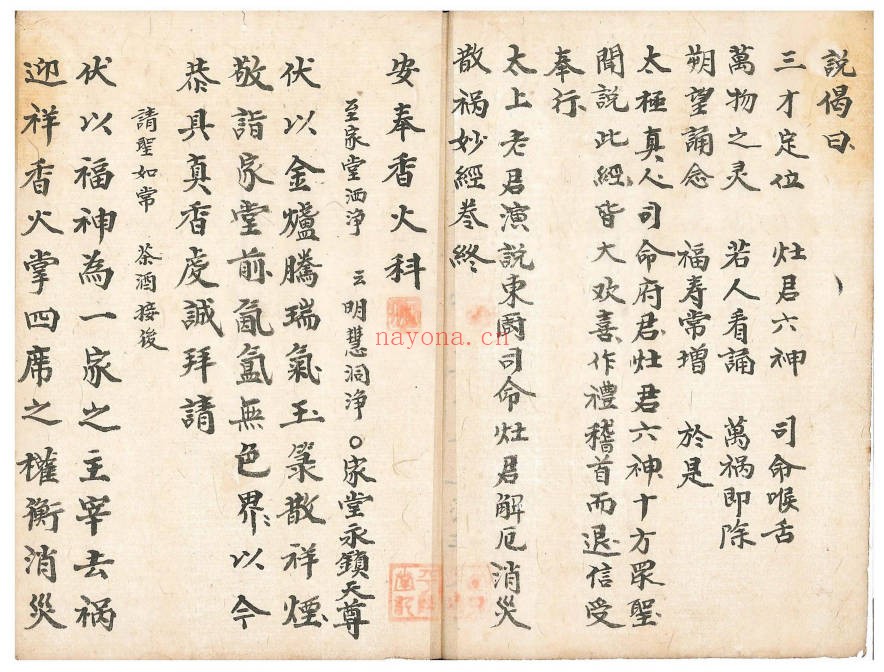 說偈曰
三才定位　灶君六神　司命喉舌
萬物之灵　若人看誦　萬祸即除
朔望誦念　福寿常增　於是
太極真人司命府君灶君六神十方眾聖
聞說此經皆大欢喜作禮稽首而退信受
奉行
太上老君演說東厨司命灶君解厄消災
散祸妙經卷終
安奉香火科
至家堂洒净　云明慧洞净○家堂永鎮天尊
伏以金爐騰瑞氣玉篆散祥煙
敬詣家堂前氤氳無色界以今
恭具真香虔誠拜請
請聖如常　茶酒接後
伏以福神為一家之主宰去祸
迎祥香火掌四席之權衡消災
nayona.cn